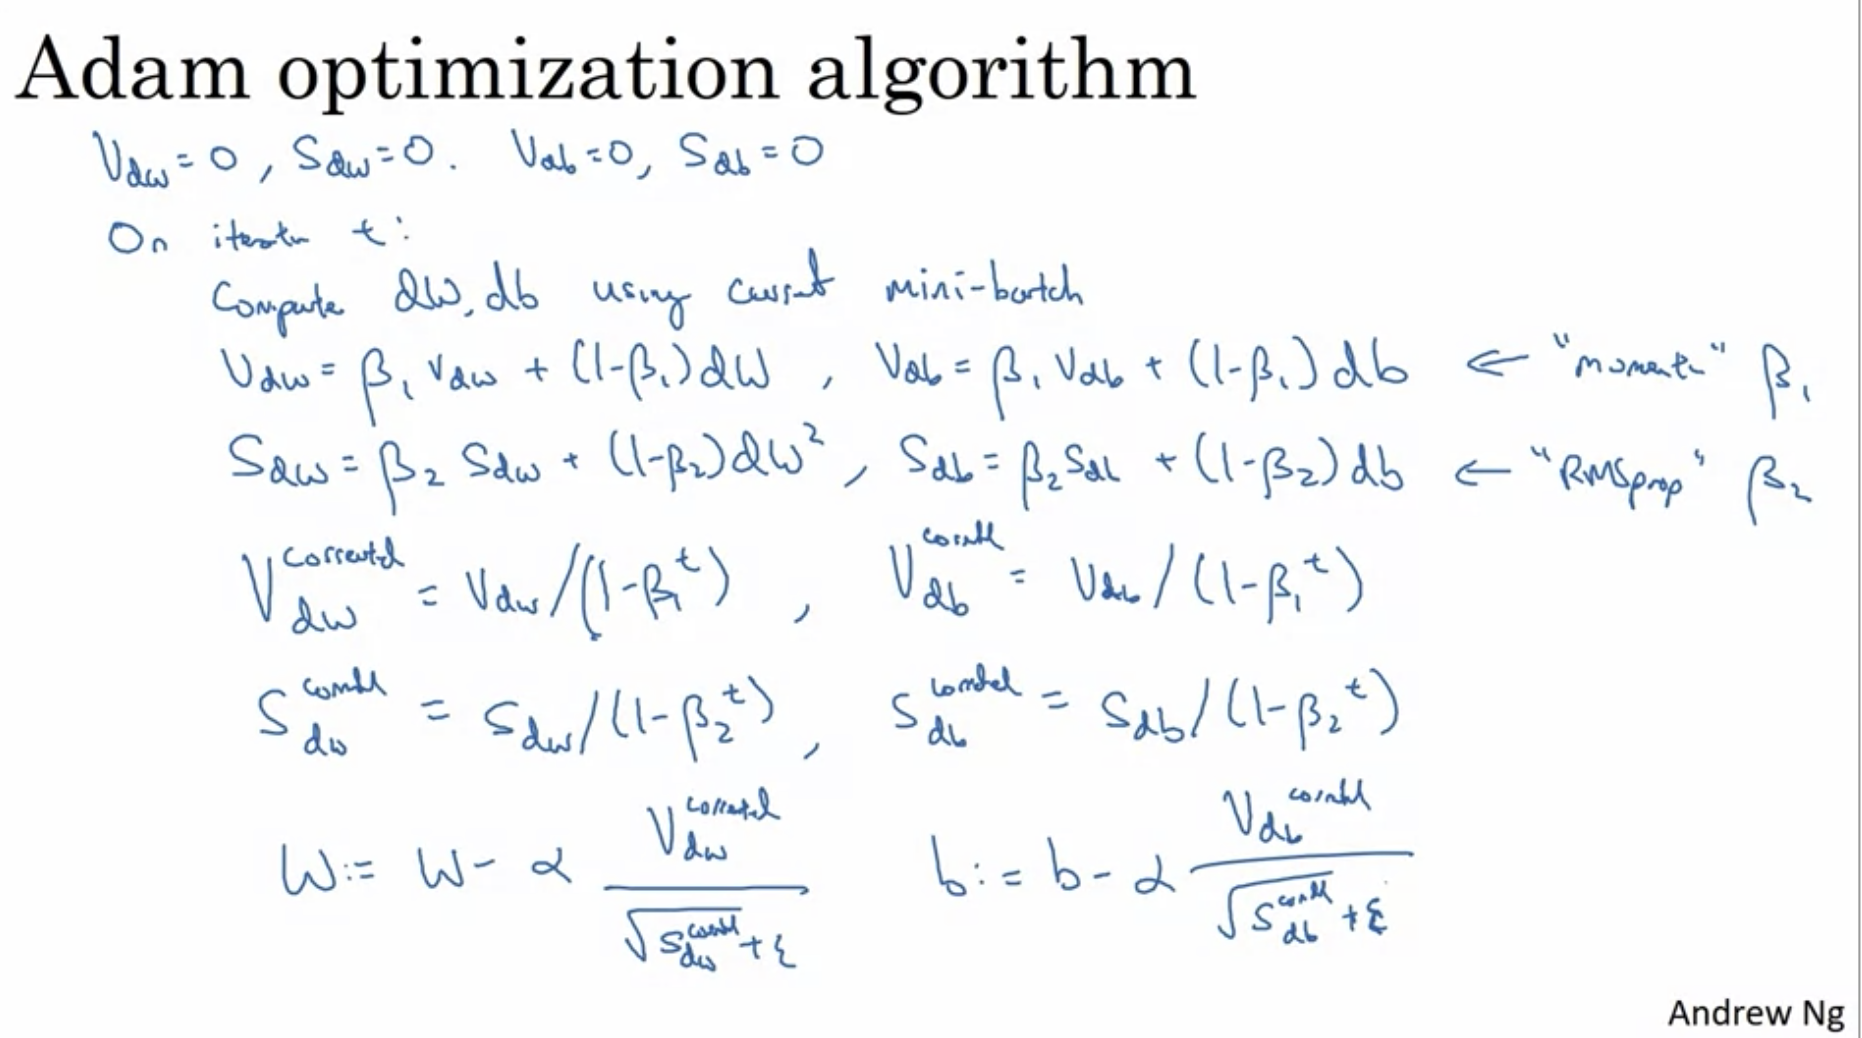 Adam optimization algorithm
V_dw = 0, S_dw = 0. V_db = 0, S_db = 0
On iteration t:
Compute dW, db using current mini-batch
V_dw = β₁ V_dw + (1-β₁) dW , V_db = β₁ V_db + (1-β₁) db ← "momentum" β₁
S_dw = β₂ S_dw + (1-β₂) dW² , S_db = β₂ S_db + (1-β₂) db ← "RMSprop" β₂
V_dw^corrected = V_dw / (1-β₁^t) , V_db^corrected = V_db / (1-β₁^t)
S_dw^corrected = S_dw / (1-β₂^t) , S_db^corrected = S_db / (1-β₂^t)
W := W - α V_dw^corrected / (√S_dw^corrected + ε) b := b - α V_db^corrected / (√S_db^corrected + ε)
Andrew Ng